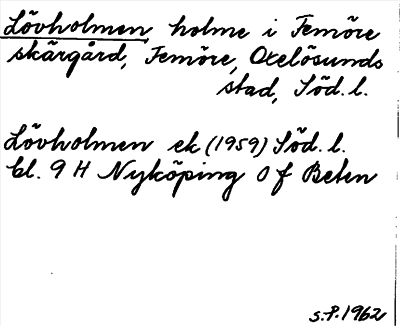 Lövholmen holme i Femöre
skärgård, Femöre, Oxelösunds
stad, Söd. l.
Lövholmen ek (1959) Söd. l.
bl. 9 H Nyköping 0 f Beten
S.P. 1962